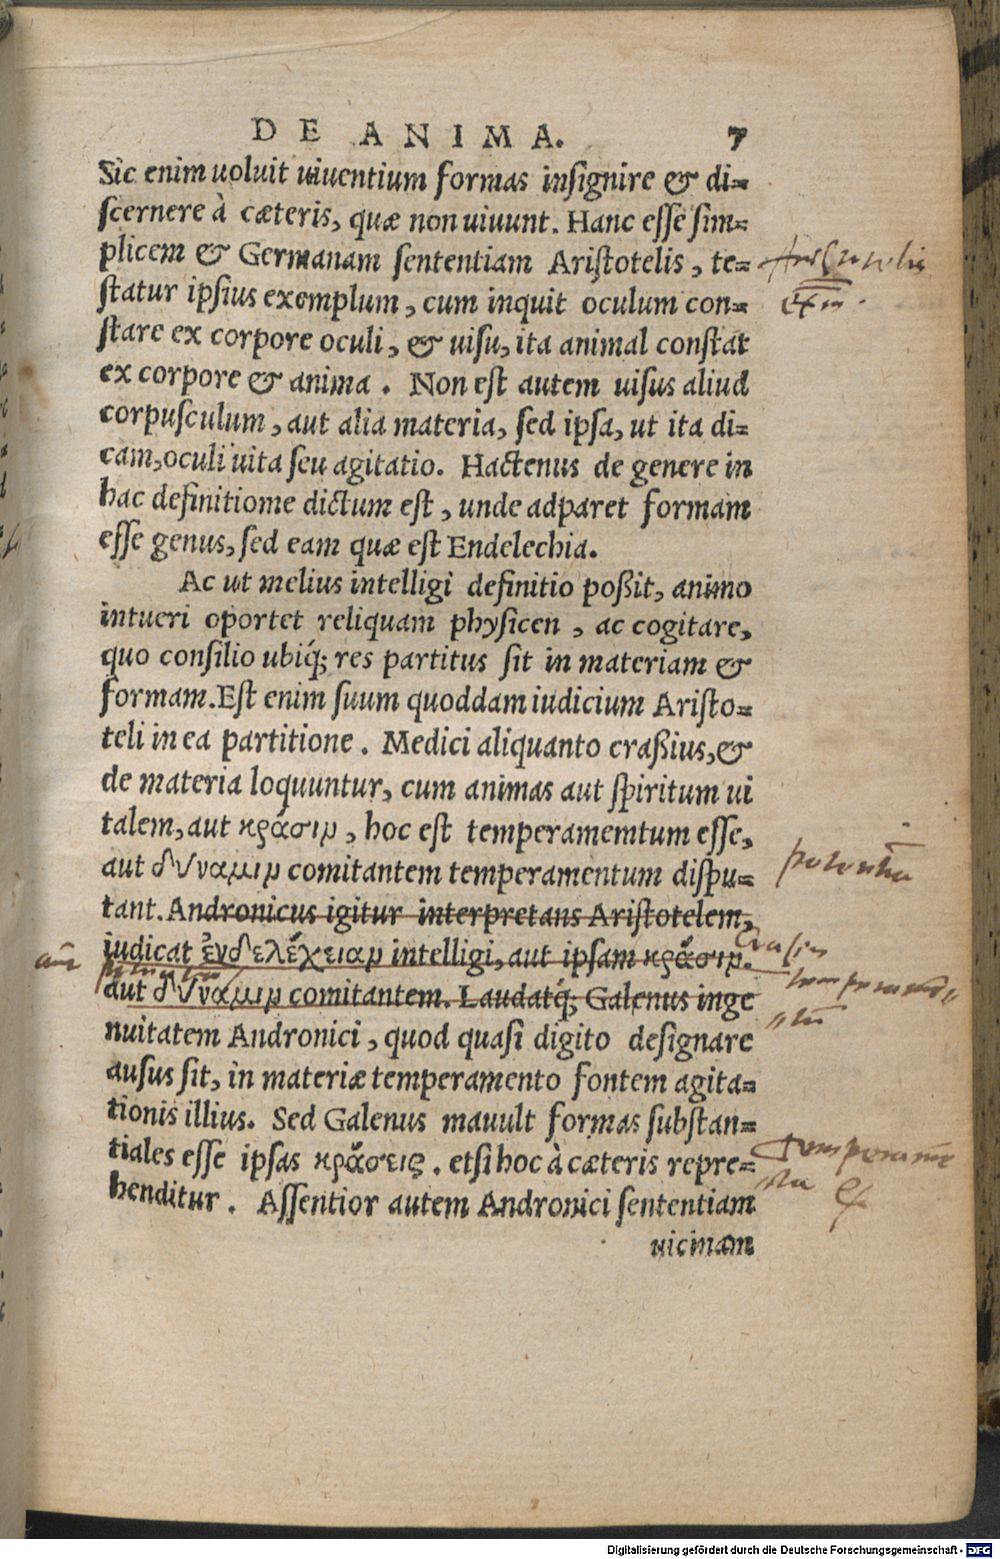 DE ANIMA. 7
Sic enim uoluit uiuentium formas insignire & di=
scernere à cæteris, quæ non uiuunt. Hanc esse sim=
plicem & Germanam sententiam Aristotelis, te=
statur ipsius exemplum, cum inquit oculum con=
stare ex corpore oculi, & uisu, ita animal constat
ex corpore & anima. Non est autem uisus aliud
corpusculum, aut alia materia, sed ipsa, ut ita di=
cam, oculi uita seu agitatio. Hactenus de genere in
hac definitione dictum est, unde adparet formam
esse genus, sed eam quæ est Endelechia.
Ac ut melius intelligi definitio poßit, animo
intueri oportet reliquam physicen, ac cogitare,
quo consilio ubiq́; res partitus sit in materiam &
formam. Est enim suum quoddam iudicium Aristo=
teli in ea partitione. Medici aliquanto craßius, &
de materia loquuntur, cum animas aut spiritum ui
talem, aut κρᾶσιμ, hoc est temperamemtum esse,
aut δύναμιμ comitantem temperamentum dispu=
tant. Andronicus igitur interpretans Aristotelem,
iudicat ἐνδελέχειαμ intelligi, aut ipsam κρᾶσιμ.
aut δύναμιμ comitantem. Laudatq́; Galenus inge
nuitatem Andronici, quod quasi digito designare
ausus sit, in materiæ temperamento fontem agita=
tionis illius. Sed Galenus mauult formas substan=
tiales esse ipsas κράσεις. etsi hoc à cæteris repre=
henditur. Assentior autem Andronici sententiam
uicinam
potentiā
Crasin
temperamē
„tū
Temperamē
„ta
Digitalisierung gefördert durch die Deutsche Forschungsgemeinschaft - DFG